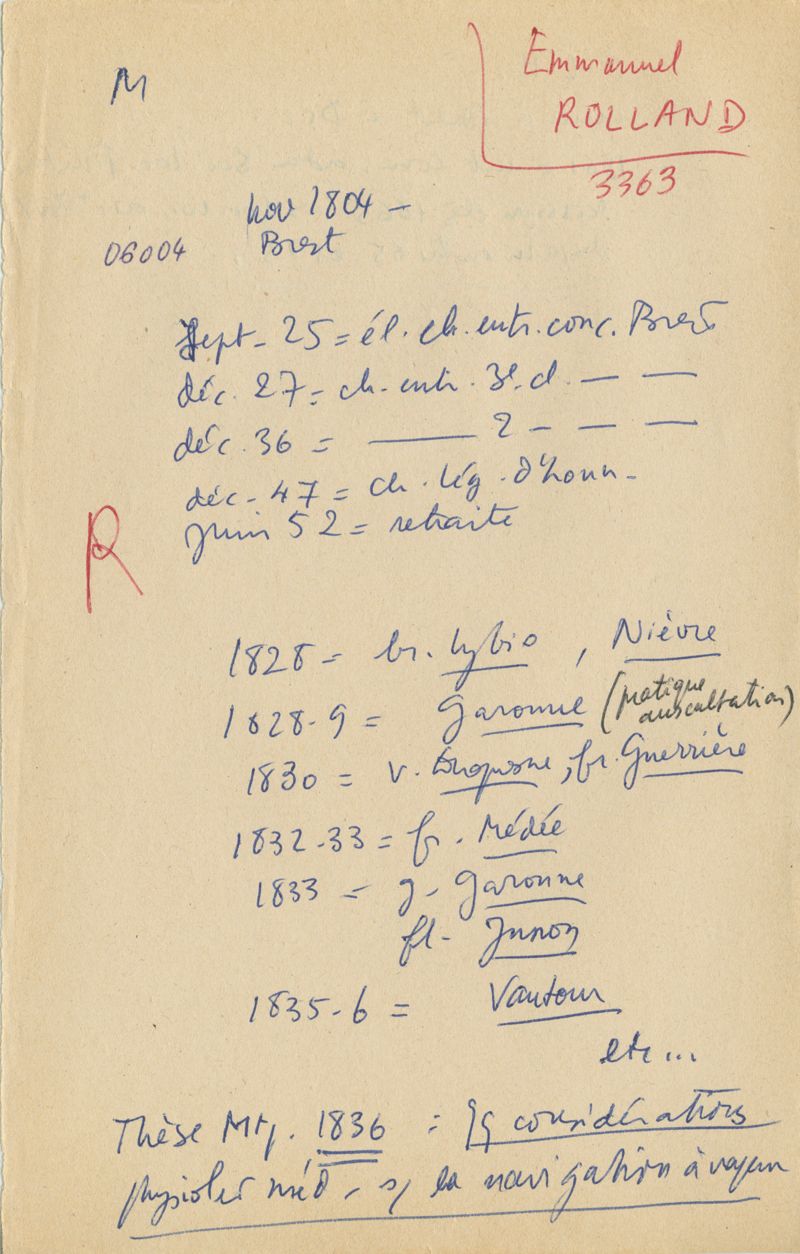 M
Emmanuel
ROLLAND
3363
nov 1804 -
06004
Brest
Sept - 25 = él. ch. entr. conc. Brest
déc. 27 = ch. entr. 3e cl. — —
déc. 36 = — 2 - — —
déc - 47 = ch. lég. d'honn -
juin 52 = retraite
R
1828 = br. Lybio, Nièvre
1828-9 = Garonne (pratique
auscultation)
1830 = v. , fr. Guerrière
1832-33 = fr. Médée
1833 = g. Garonne
fl - Junon
1835-6 = Vautour
etc...
Thèse Mtp. 1836 : Qq considérations
physiol et méd - s/ la navigation à vapeur